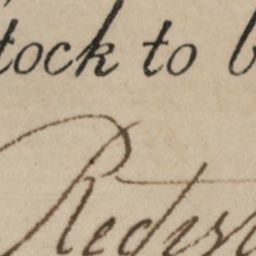 tock to b
Redis